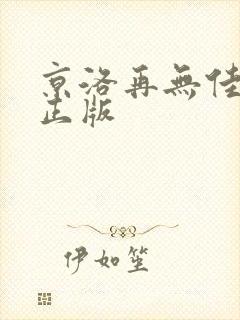 京洛再無佳
正版
伊如笙